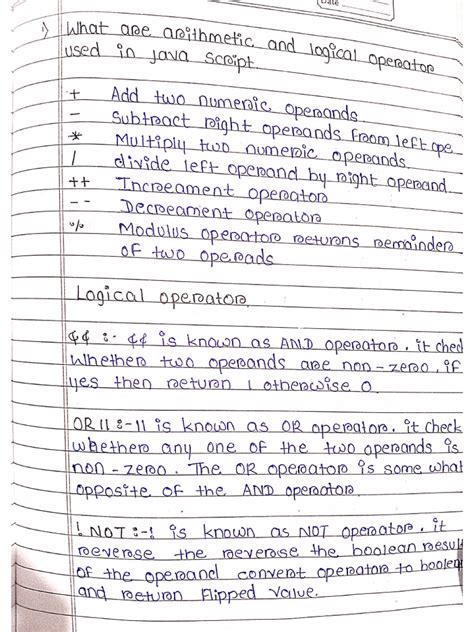 Date
1) What are arithmetic and logical operator
used in java Script
+ Add two numeric operands
- Subtract right operands from left ope
* Multiply two numeric operands
/ divide left operand by right operand
++ Increament operator
-- Decreament operator
% Modulus operator returns remainder
of two operads
Logical operator
&& :- && is known as AND operator. it chec
whether two operands are non-zero, if
yes then return 1 otherwise 0.
OR || :- || is known as OR operator. it check
whether any one of the two operands is
non-zero. The OR operator is some what
opposite of the AND operator
! NOT :- ! is known as NOT operator. it
reverse the reverse the boolean resul
of the operand convert operator to boolean
and return flipped value.